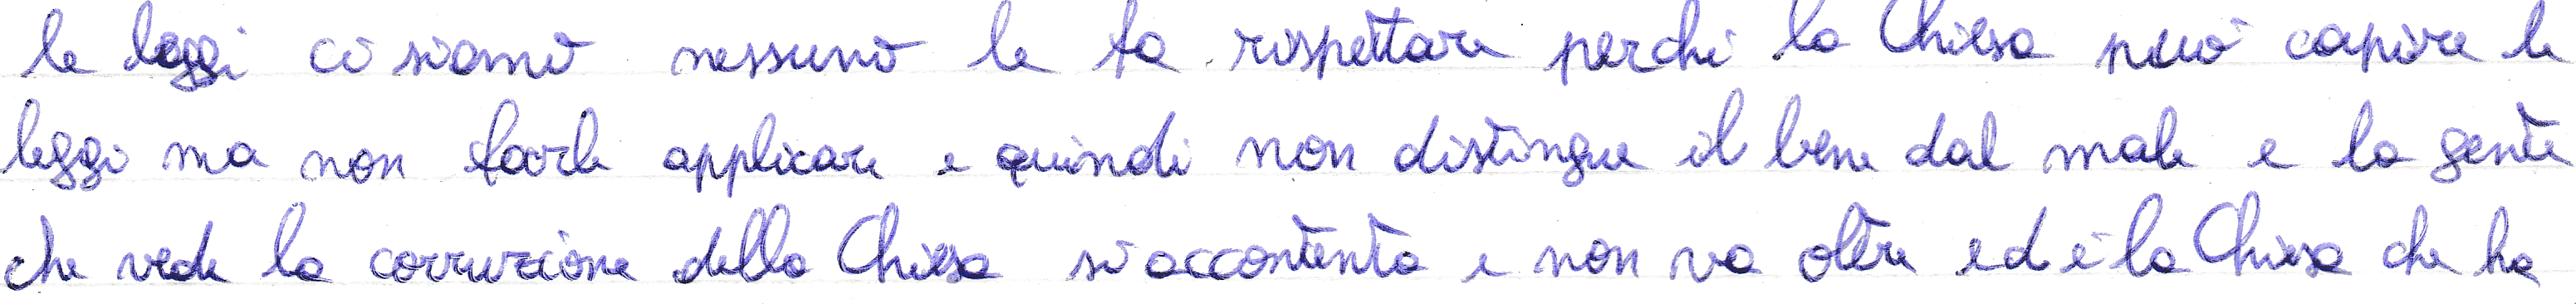 le leggi ci siano nessuno le fa rispettare perchè la Chiesa può capire le
leggi ma non farle applicare e quindi non distingue il bene dal male e la gente
che vede la corruzione della Chiesa si accontenta e non va oltre ed è la Chiesa che ha